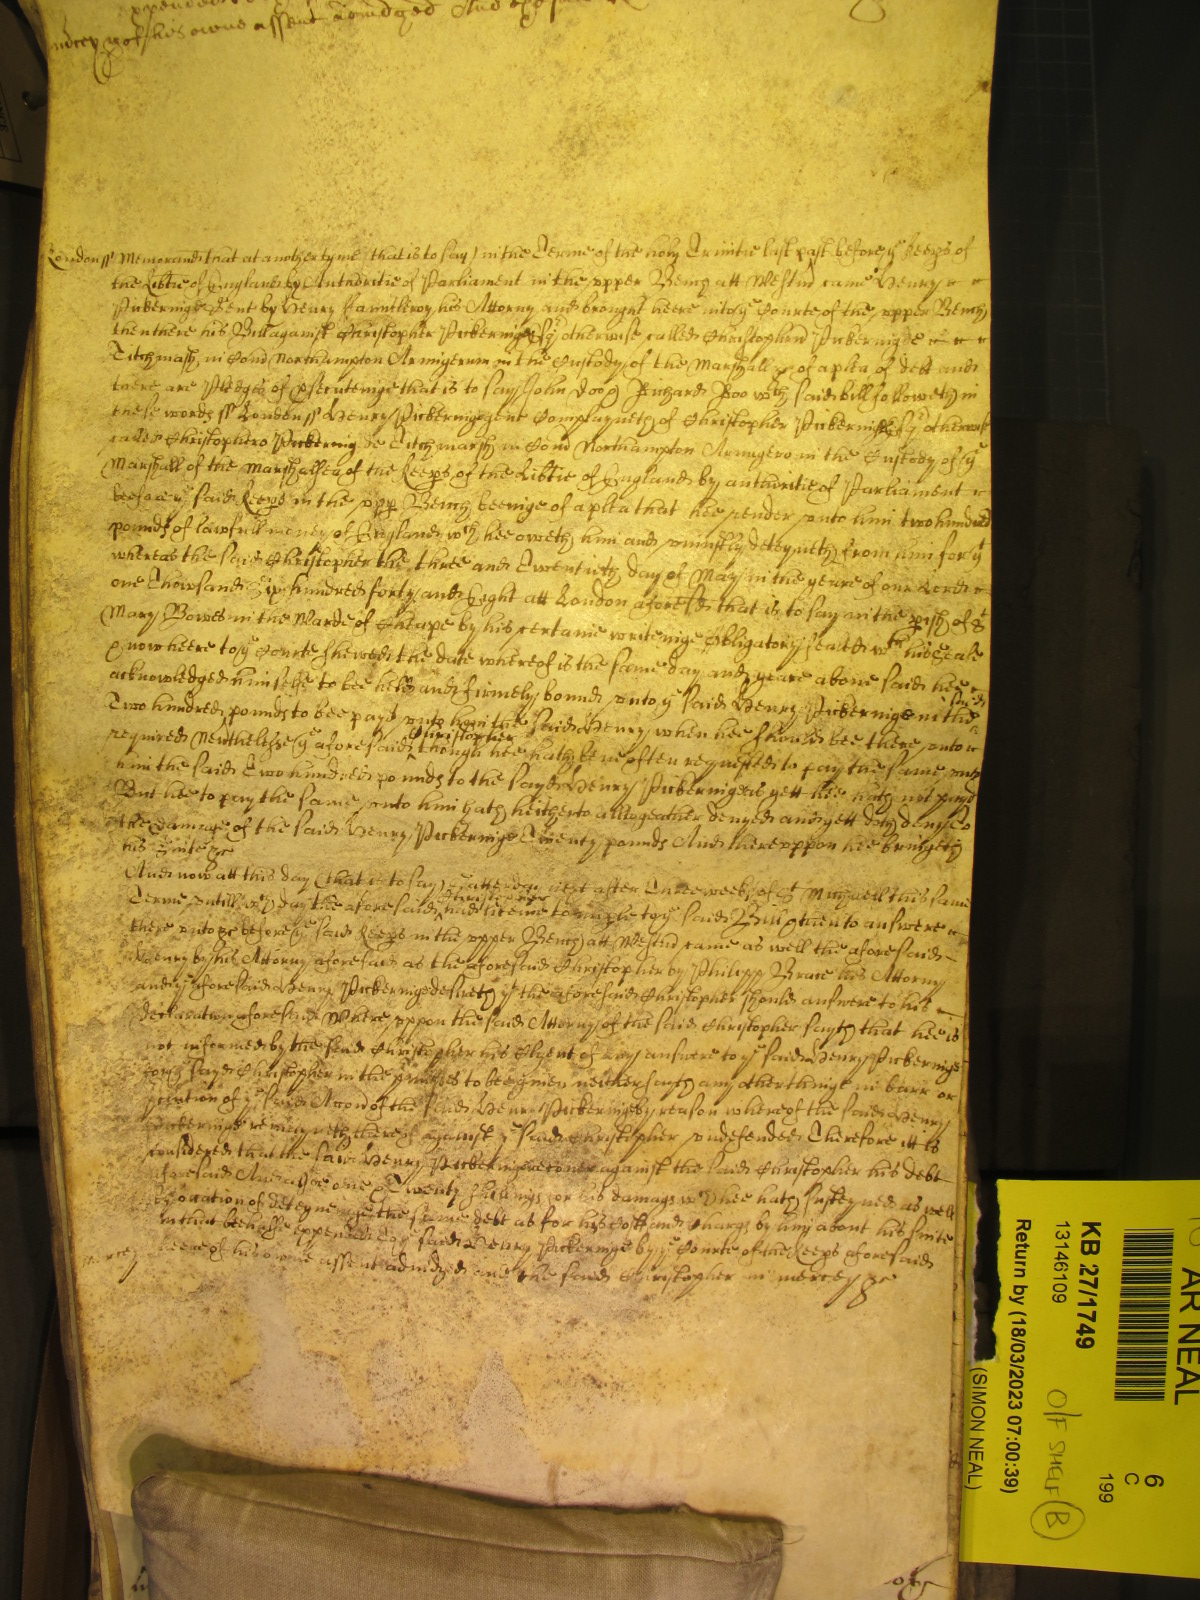 of his owne assent adiudged And
London ss Memorand that at another tyme (that is to say) in the Terme of the holy Trinitie last past before ye Keeps of
the Libtie of England by Authoritie of Parliament in the vpper Bench att Westm came Henry
Pickeringe Gent by Henry Fauntleroy his Attorny and brought heere into ye Courte of the vpper Bench
then there his Bill against Christopher Pickeringe Esq otherwise called Christopherum Pickeringe de
Titchmarsh in Com Northampton Armigerum in the Custody of the Marshall &c of a plea of debt and
there are Pledges of psecutinge that is to say John Doo & Richard Roo wch said bill followeth in
these words ss London ss Henry Pickeringe gent Complayneth of Christopher Pickeringe Esq otherwise
called Christophero Pickering de Titchmarsh in Com Northampton Armigero in the Custody of ye
Marshall of the Marshalsea of the Keeps of the Libtie of England by authoritie of Parliament
before ye said Keeps in the vpp Bench beeinge of a plea that hee render vnto him two hundred
pounds of lawfull money of England wch hee oweth him and vniustly deteyneth from him for yt
whereas the said Christopher the three and Twentieth day of May in the yeare of our Lord
one Thowsand Six hundred forty and Eight att London aforesd that is to say in the pish of St
Mary Bowes in the Warde of Cheape by his certaine writeinge Obligatory sealed wth his Seale
& now heere to ye Courte shewed the date whereof is the same day and yeare aboue said hee
acknowledged himselfe to bee held and firmely bound vnto ye said Henry Pickeringe in the said
Two hundred pounds to bee payd vnto him the said Henry when hee should bee there vnto
required Neuthelesse ye aforesaid Christopher though hee hath bene often requested to pay the same
him the said Two hundred pounds to the sayd Henry Pickeringe as yett hee hath not payd
But hee to pay the same vnto him hath heitherto alltogeather denyed and yett doth deny to
the damage of the said Henry Pickeringe Twenty pounds And therevppon hee bringeth
his suite &c
And now att this day (that is to say) Satterday next after Three weeks of St Michaell this same
Terme vntill wch day the aforesaid Christopher had licence to imple to ye said Bill & then to answere
there vnto &c before ye said Keeps in the vpper Bench att Westm came as well the aforesaid
Henry by his Attorny aforesaid as the aforesaid Christopher by Philipp Brace his Attorny
and ye aforesaid Henry Pickeringe desireth yt the aforesaid Christopher should answere to his
declaration aforesaid Where vppon the said Attorny of the said Christopher sayth that hee is
not informed by the said Christopher his Clyent of any answere to ye said Henry Pickeringe
for ye sayd Christopher in the pmisses to bee giuen neither sayth any other thinge in barr or
of ye said Accon of the said Henry Pickeringe by reason whereof the said Henry
Pickeringe remayneth thereof against ye said Christopher vndefended Therefore itt is
considered that the said Henry Pickeringe recouer against the said Christopher his debt
aforesaid And allsoe one & Twenty shillings for his damags wch hee hath susteyned as well
by occation of deteyninge the same debt as for his Costs and Chargs by him about his suite
in that behalfe expended to ye said Henry Pickeringe by ye Courte of the Keeps aforesaid
mercey heere of his owne assent adiudged and the said Christopher in mercey &c
AR NEAL
6
C
199
KB 27/1749
13146109
O/F SHELF B
Return by (18/03/2023 07:00:39)
(SIMON NEAL)